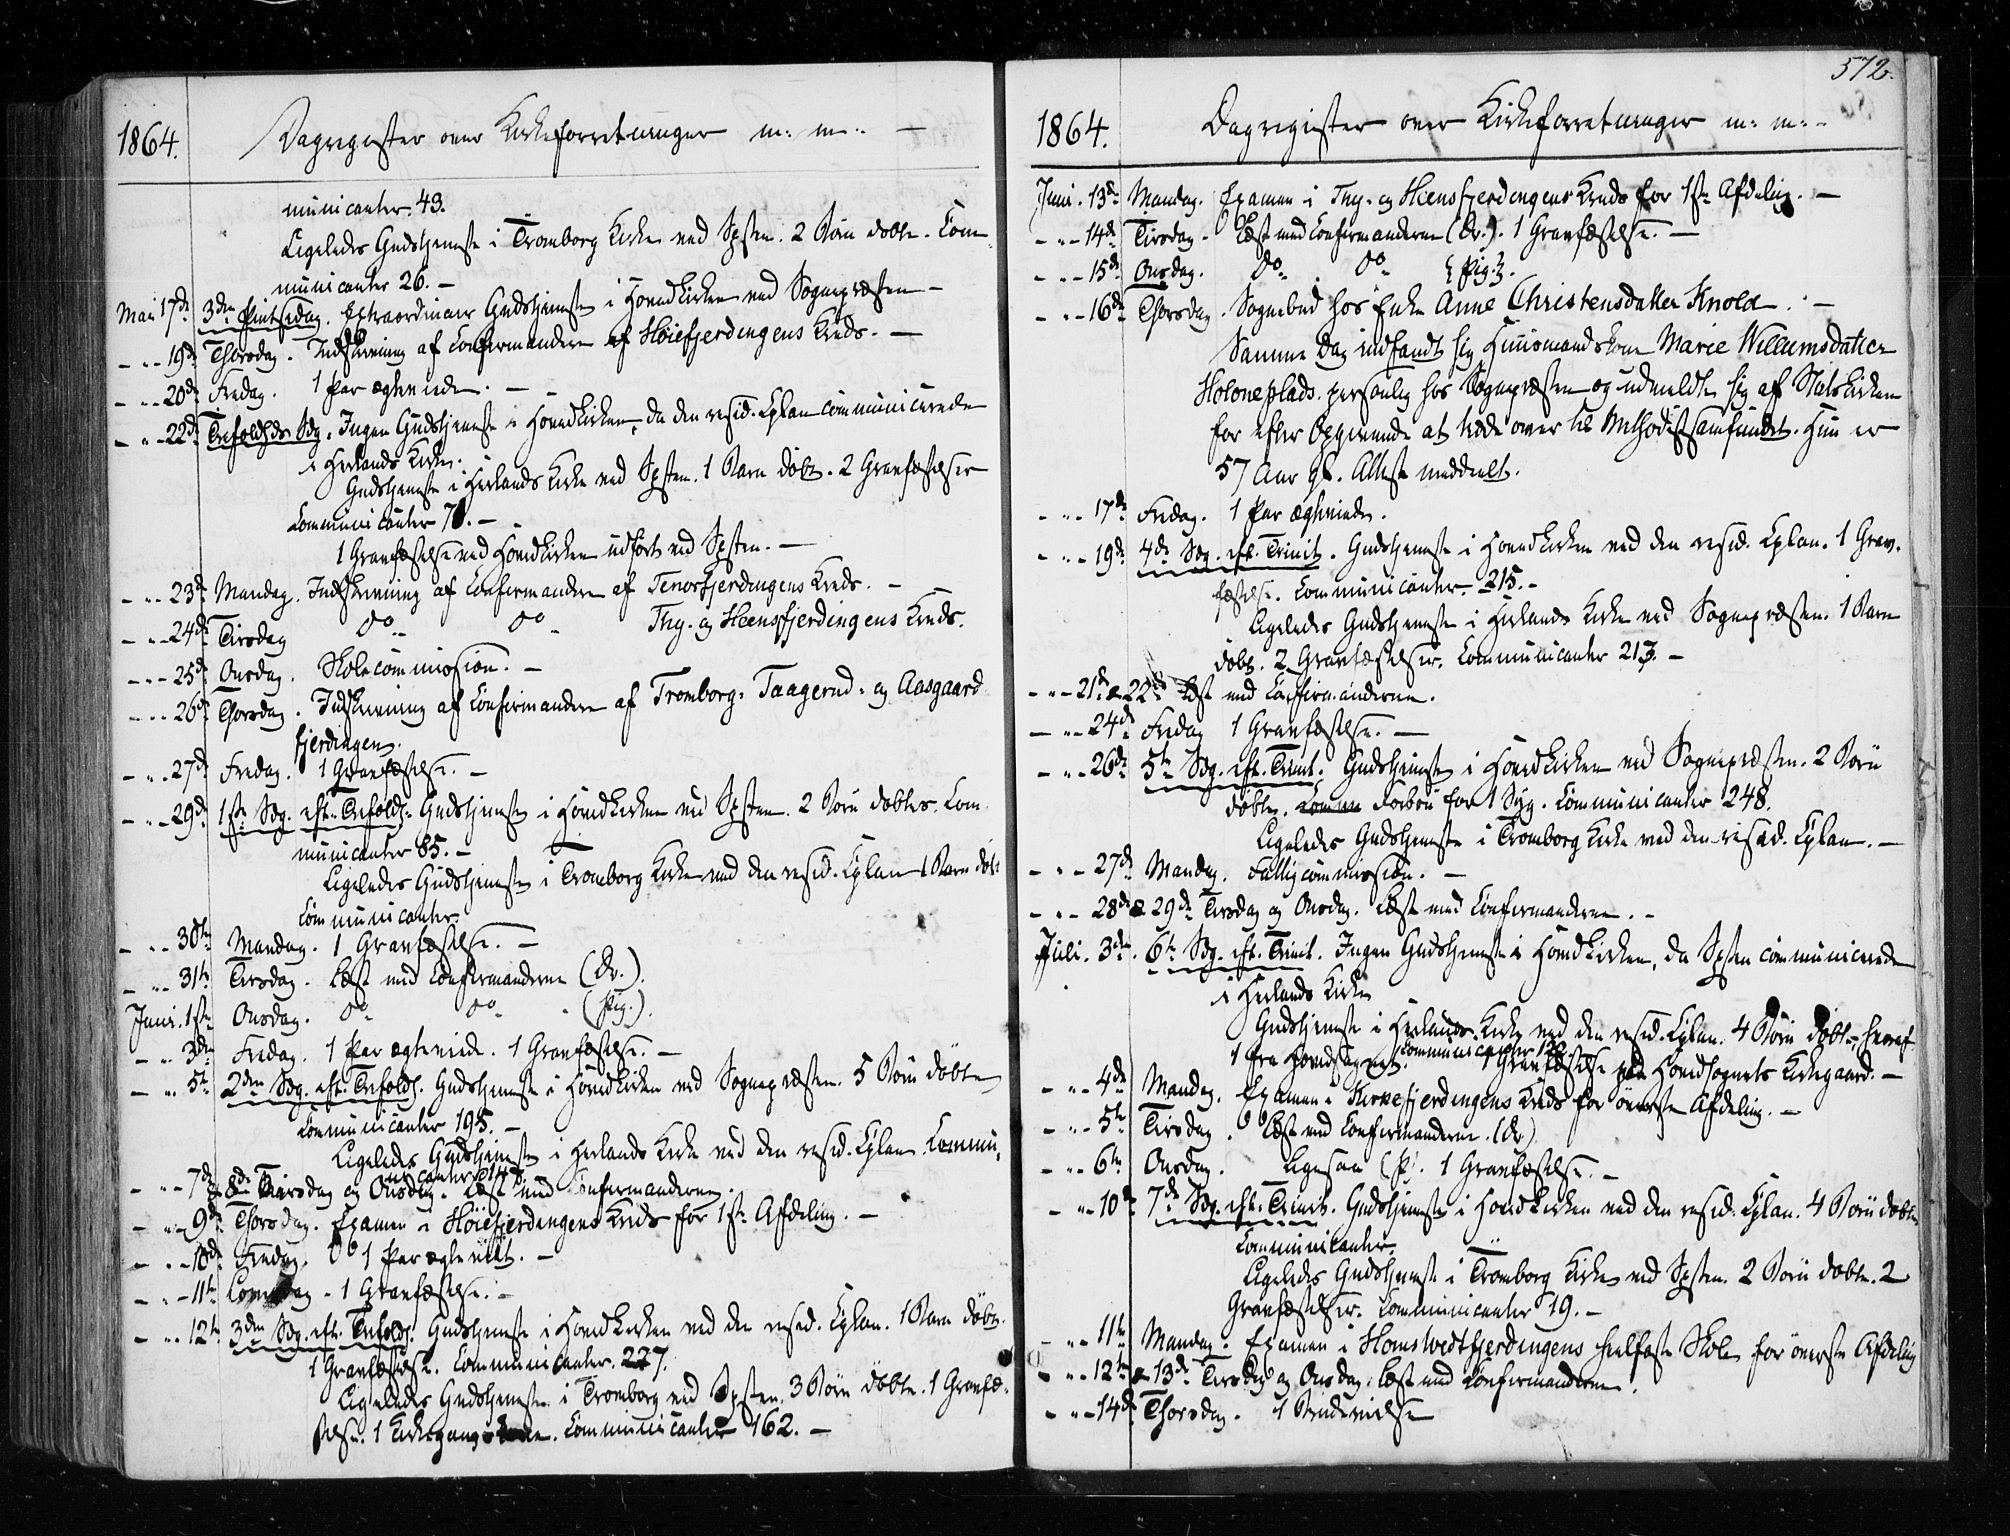 1864. Dagregister over Kirkeforretninger m: m: -
municanter. 43.
Ligeledes Gudstjeneste i Tromborg Kirke ved Spsten. 2 Börn döbte. Com-
municanter 26. -
Mai 17de 3die Pintsedag. Extraordinair Gudstjeneste i Hovedkirken ved Sognepræsten -
- " - 19de Thorsdag. Indskrivning af Confirmander af Höiefjerdingens Kreds. -
- " - 20de Fredag. 1 Par ægteviede. -
- " - 22de Trefoldhds Sdg. Ingen Gudstjeneste i Hovedkirken, da den resid. Cplan communicerede
i Herlands Kirke.
Gudstjeneste i Herlands Kirke ved Spsten. 1 Barn döbt. 2 Gravfæstelser
Communicanter 71. -
1 Gravfæstelse ved Hovedkirken udfört ved Spsten. -
- " - 23de Mandag. Indskrivning af Confirmander af Tenorfjerdingens Kreds. -
- " - 24de Tirsdag do do Thy- og Heensfjerdingens Kreds.
- " - 25de Onsdag. Skolecommission. -
- " - 26de Thorsdag. Indskrivning af Confirmander af Tromborg- Taagerud- og Aasgaard
fjerdingen.
- " - 27de Fredag. 1 Gravfæstelse. -
- " - 29de 1ste Sdg. eft. Trefoldh. Gudstjeneste i Hovedkirken ved Spsten. 2 Börn döbtes. Com
municanter 85. -
Ligeledes Gudstjeneste i Tromborg Kirke ved den resid. Cplan 1 Barn döbt
Communicanter.
- " - 30te Mandag. 1 Gravfæstelse. -
- " - 31te Tirsdag. Læst med Confirmanderne (Dr.).
Juni. 1ste Onsdag. do do (Pig.).
- " 3die Fredag. 1 Par ægteviede. 1 Gravfæstelse. -
- " 5te 2den Sdg. eft. Trefoldh. Gudstjeneste i Hovedkirken ved Sognepræsten. 5 Börn döbte
Communicanter 195. -
Ligeledes Gudstjeneste i Herlands Kirke ved den resid. Cplan Commu-
nicanter 147.
- " - 7de & 8de Tirsdag og Onsdag. Læst med Confirmanderne.
- " - 9de Thorsdag. Examen i Höiefjerdingens Kreds for 1ste Afdeling. -
- " - 10de Fredag. 1 Par ægteviet. -
- " - 11te Löverdag - 1 Gravfæstelse. -
- " - 12te 3die Sdg. eft. Trefoldh. Gudstjeneste i Hovedkirken ved den resid. Cplan. 1 Barn döbt.
1 Gravfæstelse. Communicanter. 227.
Ligeledes Gudstjeneste i Tromborg ved Spsten. 3 Börn döbte. 1 Gravfæ-
stelse. 1 Kirkegangskone. Communicanter 162. -
572.
1864. Dagregister over Kirkeforretninger m: m: -
Juni. 13de Mandag. Examen i Thy- og Heensfjerdingens Kreds for 1ste Afdeling. -
- " - 14de Tirsdag. Læst med Confirmanderne (Dr.). 1 Gravfæstelse. -
- " - 15de Onsdag. do do (Pig.).
- " - 16de Thorsdag. Sognebud hos Enke Anne Christensdatter Knold. -
Samme Dag indfandt sig Huusmandskone Marie Willumsdatter
Holoneplads. personlig hos Sognepræsten og udmeldte sig af Statskirken
for efter Opgivende at træde over til Methodistsamfundet. Hun er
57 Aar gl. Attest meddeelt.
- " - 17de Fredag. 1 Par ægteviede.
- " - 19de 4de Sdg. eft. Trinit. Gudstjeneste i Hovedkirken ved den resid. Cplan. 1 Grav-
fæstelse. Communicanter 215. -
Ligeledes Gudstjeneste i Herlands Kirke ved Sognepræsten. 1 Barn
döbt. 2 Gravfæstelser. Communicanter 213. -
- " - 21de & 22de Læst med Confirmanderne.
- " - 24de Fredag 1 Gravfæstelse. -
- " - 26de 5te Sdg. eft. Trinit. Gudstjeneste i Hovedkirken ved Sognepræsten. 2 Börn
döbte. Forbön for 1 Syg. Communicanter 248.
Ligeledes Gudstjeneste i Tromborg Kirke ved den resid. Cplan. -
- " - 27de Mandag. Fattigcommission. -
- " - 28de & 29de Tirsdag og Onsdag. Læst med Confirmanderne. -
Juli. 3die. 6te Sdg. eft. Trinit. Ingen Gudstjeneste i Hovedkirken, da Spsten communicerede
i Herlands Kirke
Gudstjeneste i Herlands Kirke ved den resid. Cplan. 4 Börn döbte, hvoraf
1 fra Hovedsognet. Communicanter 1 Gravfæstelse paa Hovedsognets Kirkegaard. -
- " - 4de Mandag. Examen i Kirkefjerdingens Kreds for överste Afdeling. -
- " - 5te Tirsdag. Læst med Confirmanderne. (Dr.)
- " - 6te Onsdag. Ligesaa (P). 1 Gravfæstelse. -
- " - 10de 7de Sdg. eft. Trinit. Gudstjeneste i Hovedkirken ved den resid. Cplan. 4 Börn döbte
Communicanter.
Ligeledes Gudstjeneste i Tromborg Kirke ved Spsten. 2 Börn döbte. 2
Gravfæstelser. Communicanter 19. -
- " - 11te Mandag. Examen i Homstvedtfjerdingens heelfaste Skole for överste Afdeling
- " - 12te & 13de Tirsdag og Onsdag. Læst med Confirmanderne.
- " - 14de Thorsdag. 1 Brudevielse